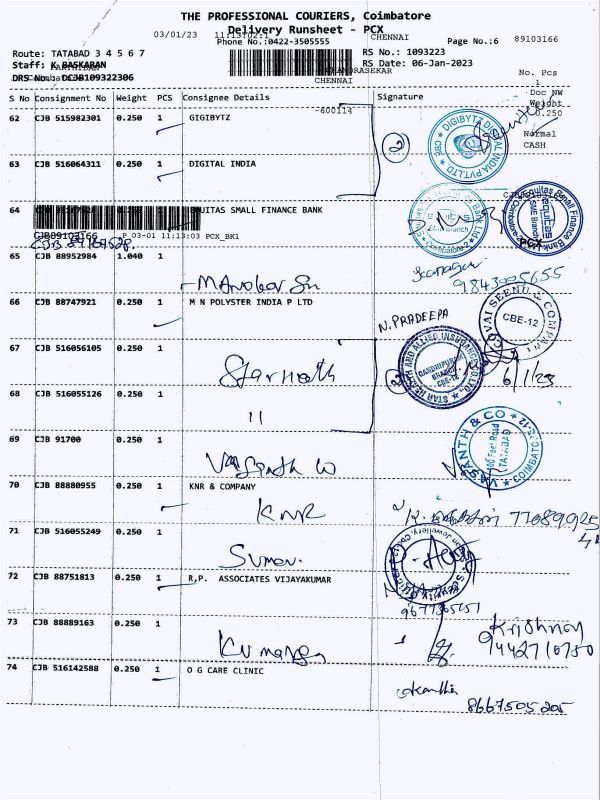 THE PROFESSIONAL COURIERS, Coimbatore
03/01/23 11:13:02:1 CHENNAI
Delivery Runsheet - PCX
Phone No.:0422-3505555 Page No.:6 89103166
Route: TATABAD 3 4 5 6 7 RS No.: 1093223
Staff: K BASKARAN RS Date: 06-Jan-2023
DRS No.: DCJB109322306 No. Pcs
CHENNAI 1
Doc NW
S No Consignment No Weight PCS Consignee Details Signature Weight
-600114 0.250
62 CJB 515982301 0.250 1 GIGIBYTZ
Normal
CASH
DIGIBYTZ DIGITAL INDIA PVT.LTD CBE
2
63 CJB 516064311 0.250 1 DIGITAL INDIA
64 EQUITAS SMALL FINANCE BANK
Equitas Small Finance Bank Ltd
equitas
SME Branch
Coimbatore-2
PCX
CJB89103166 P 03-01 11:13:03 PCX_BK1
65 CJB 88952984 1.040 1
9843005655
66 CJB 88747921 0.250 1 M N POLYSTER INDIA P LTD
N. PRADEEPA
KOVAI SEENU & COMPANY
CBE-12
67 CJB 516056105 0.250 1
STAR HEALTH AND ALLIED INSURANCE CO.LTD.
GANDHIPURAM
BRANCH
CBE-12
2
6/1/23
68 CJB 516055126 0.250 1
11
69 CJB 91700 0.250 1
VASANTH & CO
100 Feet Road
TATABAD
COIMBATORE-12
70 CJB 88880955 0.250 1 KNR & COMPANY
KNR
71 CJB 516055249 0.250 1
72 CJB 88751813 0.250 1 R.P. ASSOCIATES VIJAYAKUMAR
73 CJB 88889163 0.250 1
Krishnan
9442710750
74 CJB 516142588 0.250 1 O G CARE CLINIC
8667505205